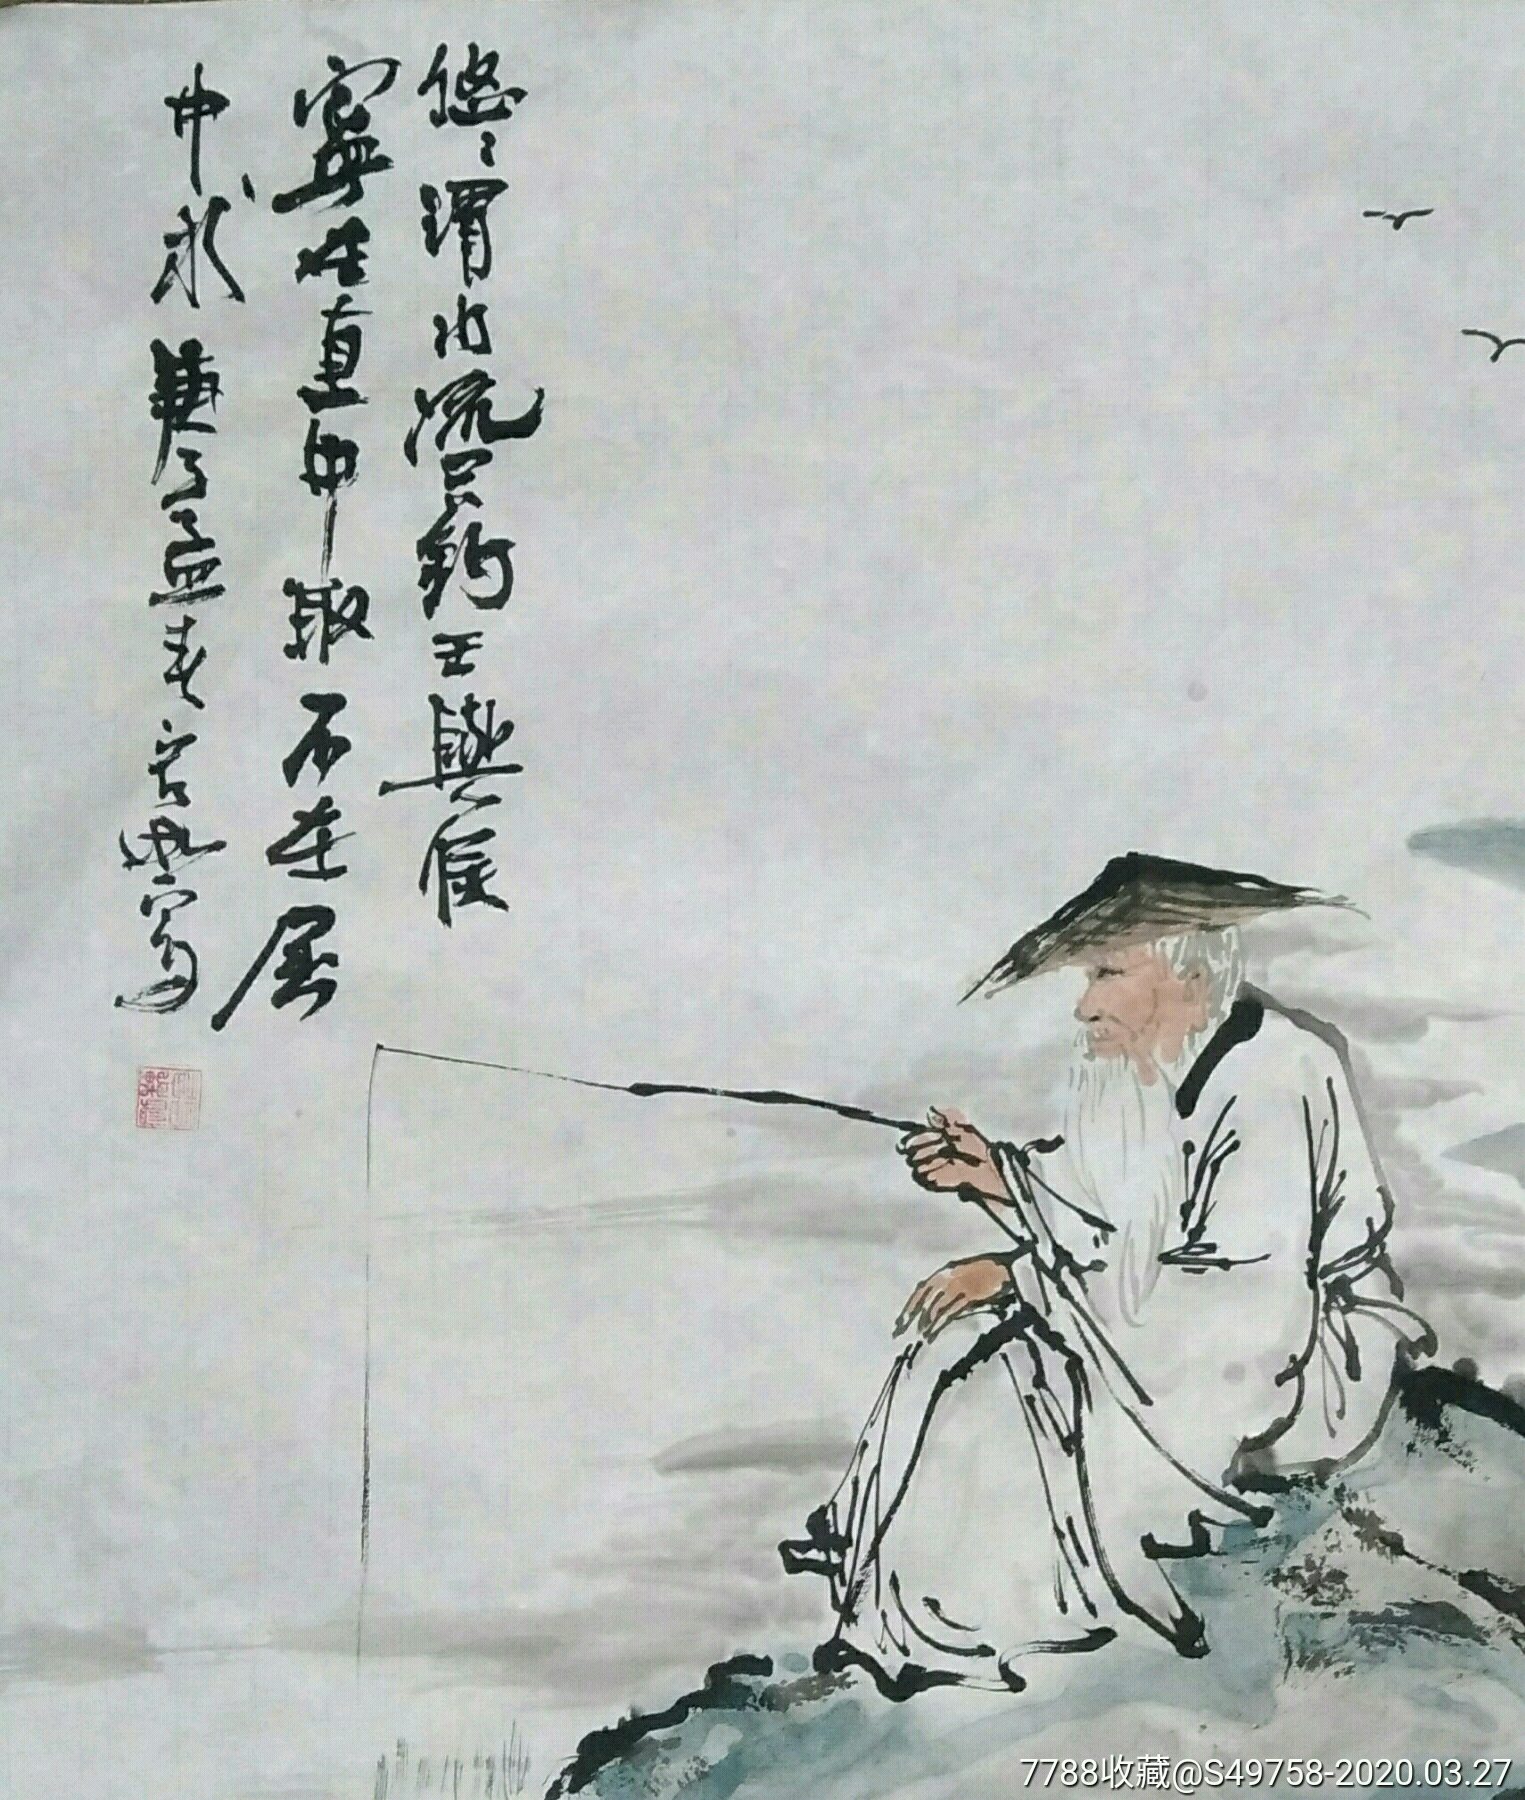 悠々渭水流只钓王與侯
寧在直中取不在屈
中求 庚子孟春言風寫
7788收藏@S49758-2020.03.27